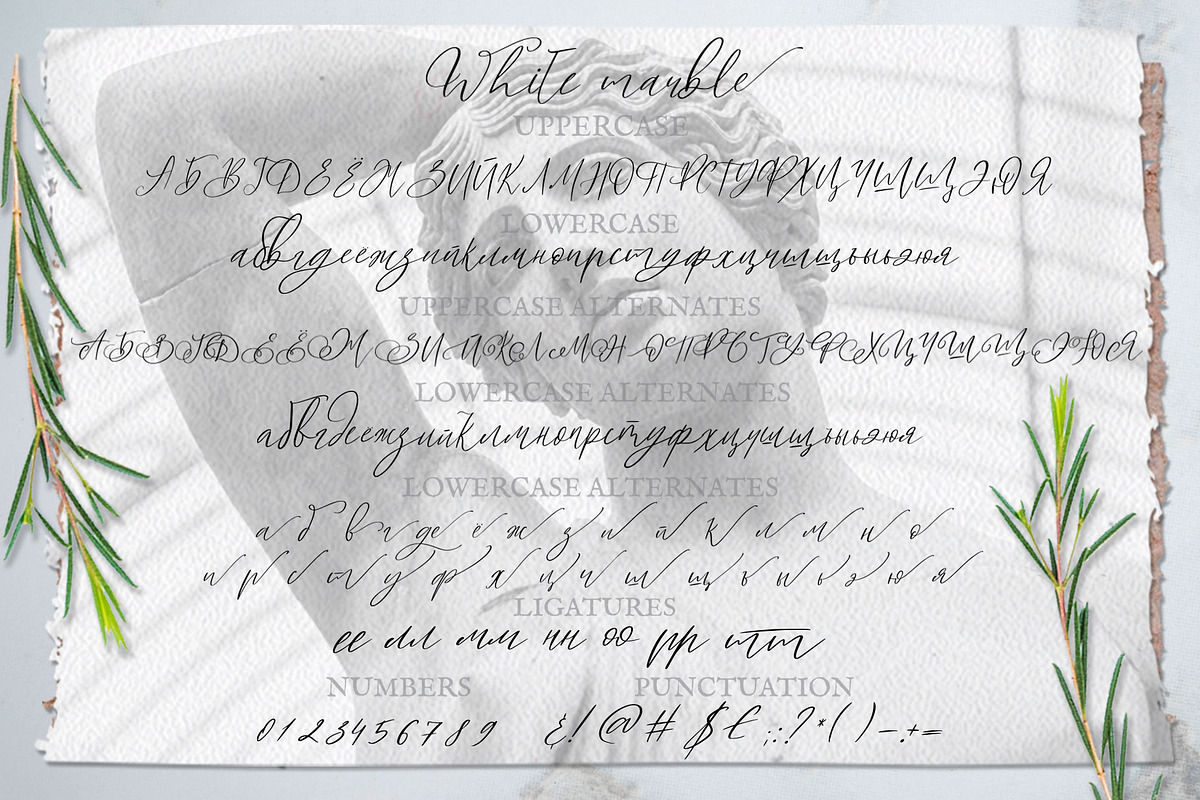 White marble
UPPERCASE
АБВГДЕЁЖЗИЙКЛМНОПРСТУФХЦЧШЩЭЮЯ
LOWERCASE
абвгдеёжзийклмнопрстуфхцчшщъыьэюя
UPPERCASE ALTERNATES
АБВГДЕЁЖЗИЙКЛМНОПРСТУФХЦЧШЩЭЮЯ
LOWERCASE ALTERNATES
абвгдеёжзийклмнопрстуфхцчшщъыьэюя
LOWERCASE ALTERNATES
а б в г д е ё ж з и й к л м н о
п р с т у ф х ц ч ш щ ъ ы ь э ю я
LIGATURES
ее лл мм нн оо рр тт
NUMBERS PUNCTUATION
0123456789 &!@#$£;:?*()-.+=